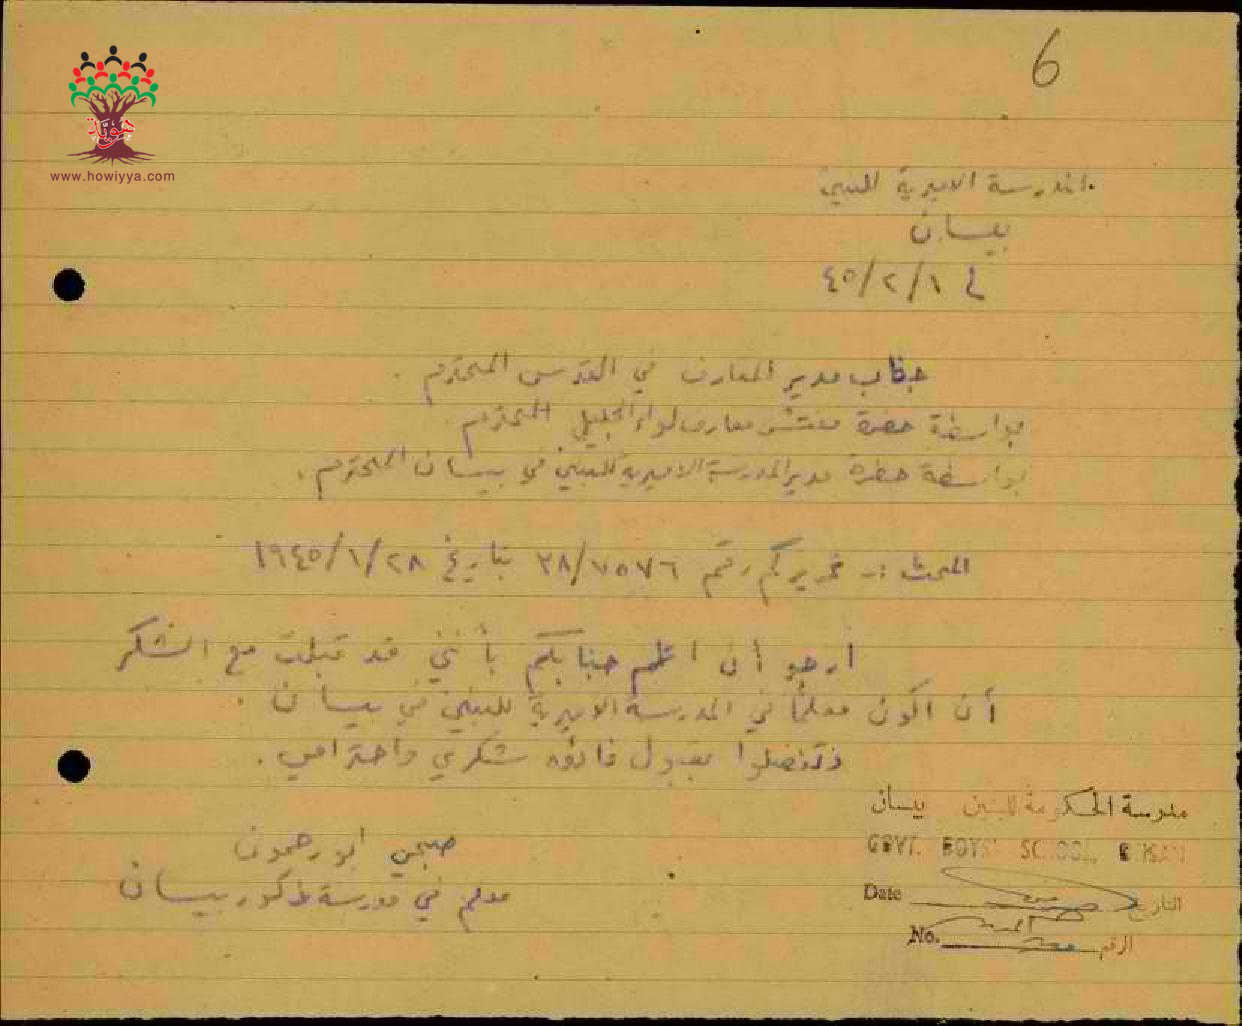 6
هوية
www.howiyya.com
المدرسة الاميرية للبنين
بيسان
في ١/٢/٤٥
جناب مدير المعارف في القدس المحترم.
بواسطة حضرة مفتش معارف لواء الجليل المحترم
بواسطة حضرة مدير المدرسة الاميرية للبنين في بيسان المحترم.
المبحث :- تحريركم رقم ٣٨/٧٥٧٦ بتاريخ ٢٨/١/١٩٤٥
ارجو أن اعلم جنابكم بأنني قد قبلت مع الشكر
أن اكون معلمًا في المدرسة الاميرية للبنين في بيسان.
وتفضلوا بقبول فائق شكري واحترامي.
صبحي ابو رحمون
معلم في مدرسة ذكور بيسان
مدرسة الحكومة للبنين بيسان
GOVT. BOYS' SCHOOL, BEISAN
Date التاريخ
No. الرقم